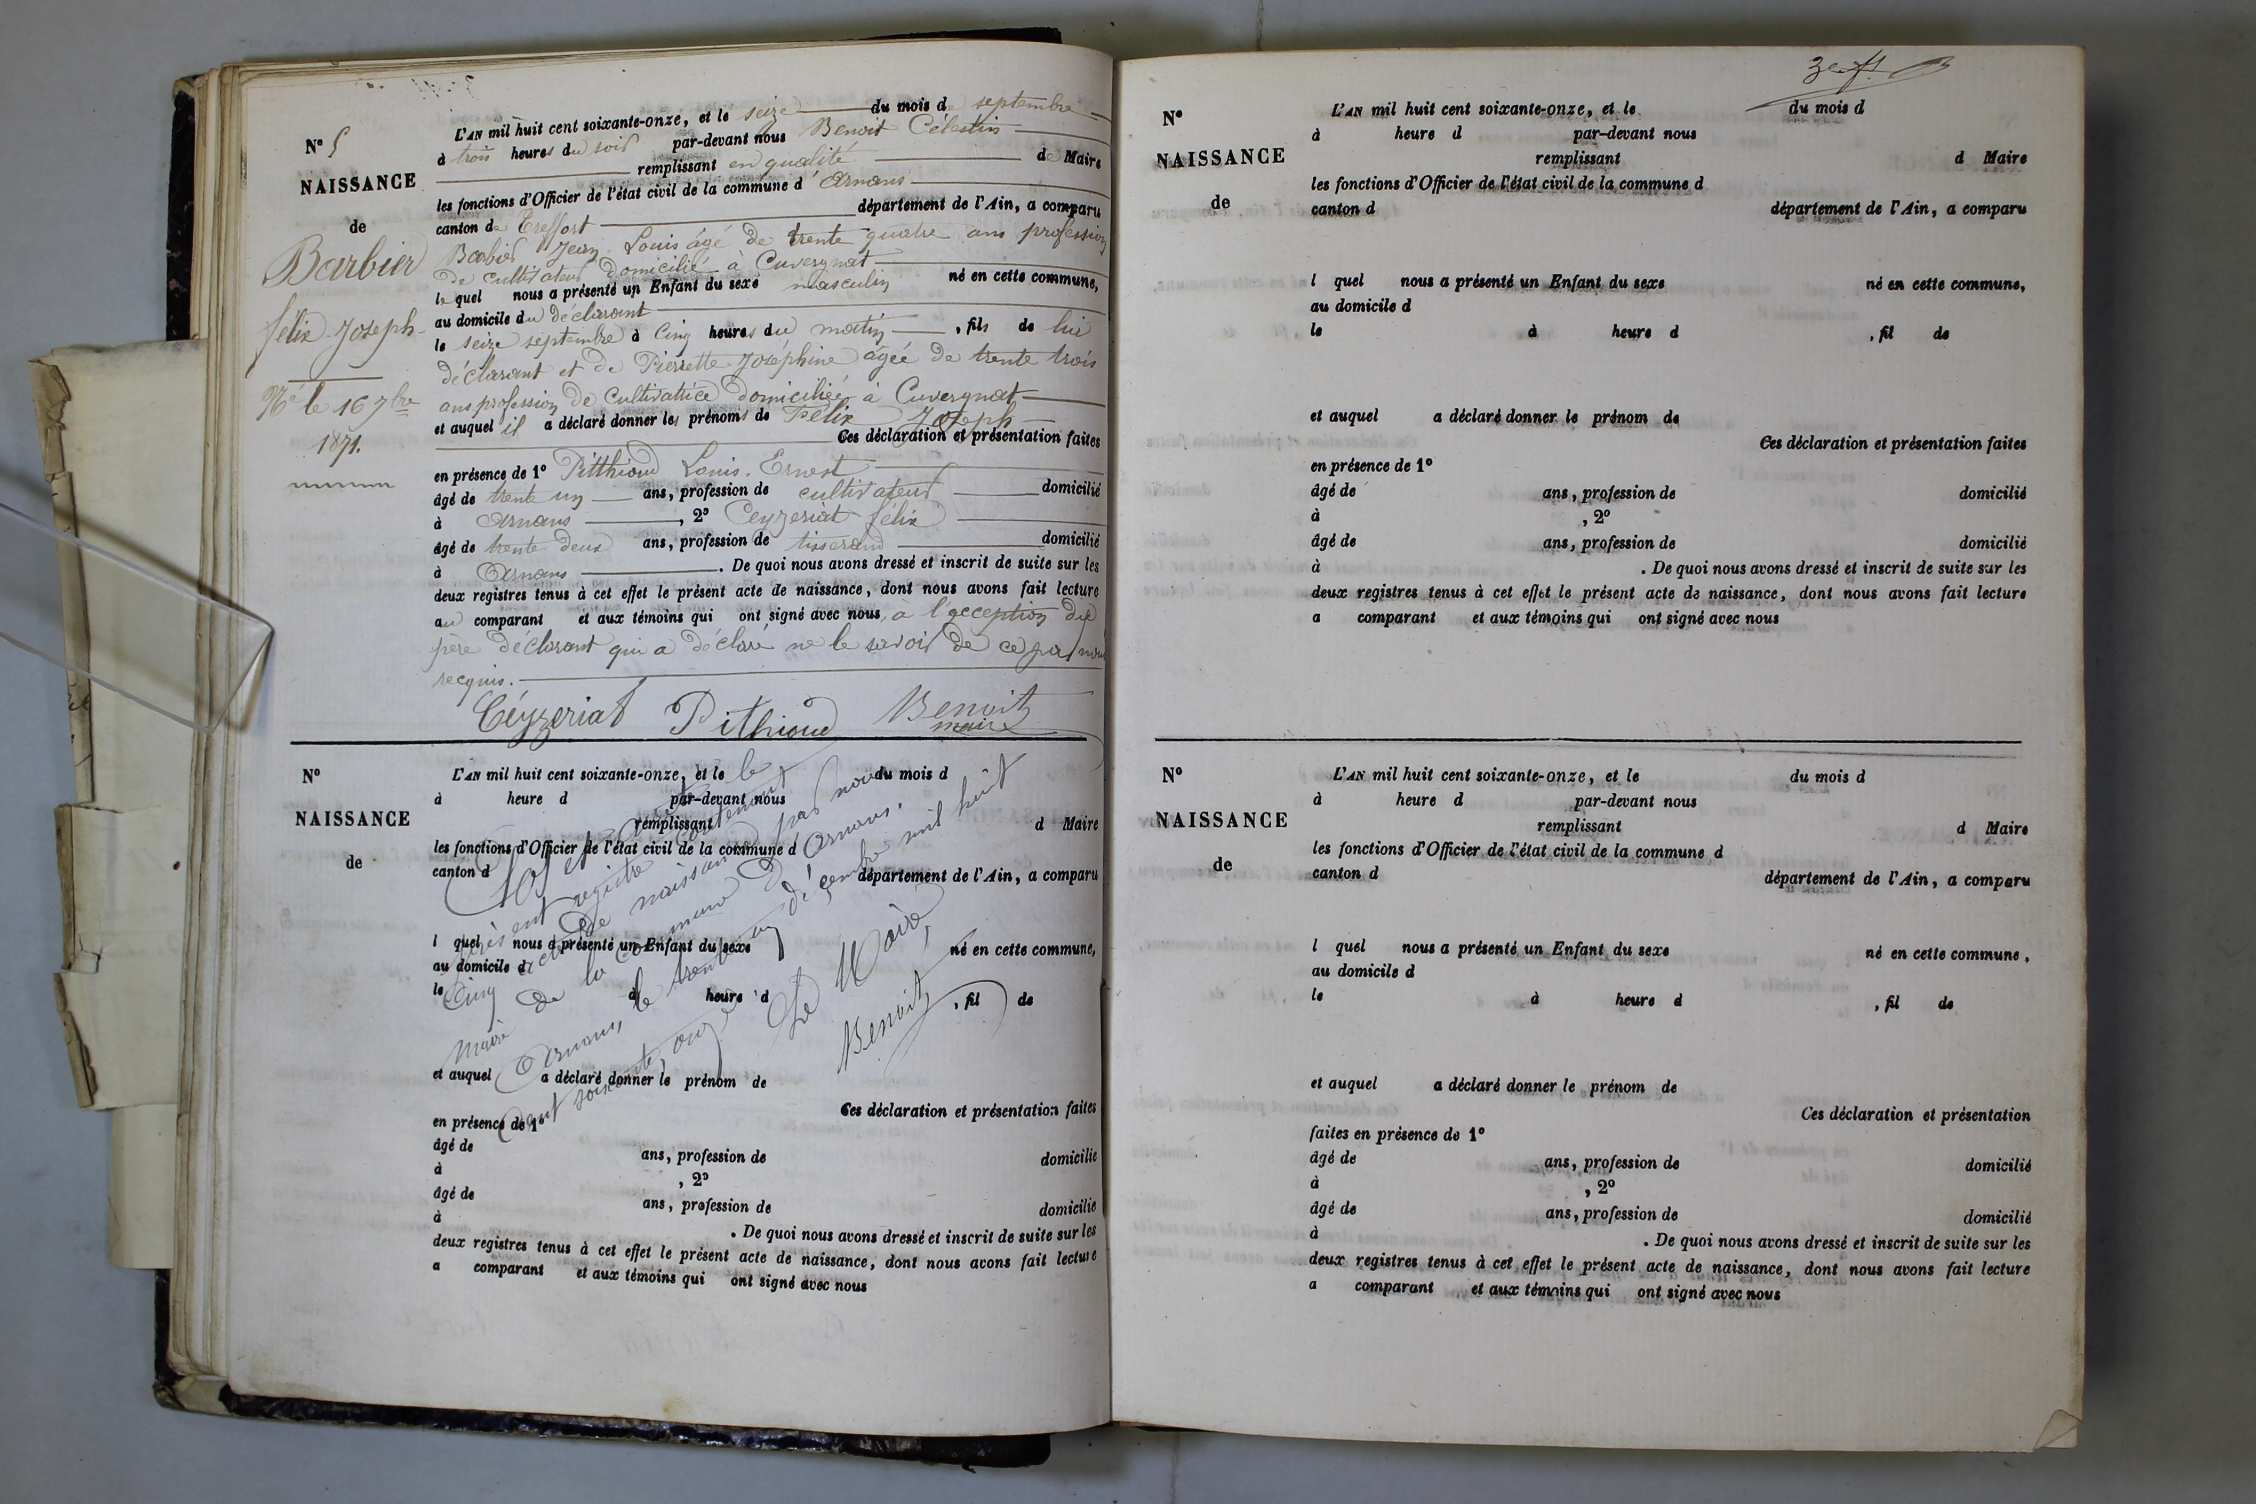 N° 5
NAISSANCE
de
Barbier
félix Joseph
Né le 16 7bre
1871.
L'AN mil huit cent soixante-onze, et le seize du mois de septembre
à trois heures du soir par-devant nous Benoit Célestin
remplissant en qualité de Maire
les fonctions d'Officier de l'état civil de la commune d'Arnans
canton de Treffort département de l'Ain, a comparu
Barbier Jean Louis âgé de trente quatre ans profession
de cultivateur domicilié à Cuvergnat
lequel nous a présenté un Enfant du sexe masculin né en cette commune,
au domicile du déclarant
le seize septembre à Cinq heures du matin, fils de lui
déclarant et de Pierrette Joséphine âgée de trente trois
ans profession de cultivatrice domiciliée à Cuvergnat
et auquel il a déclaré donner les prénoms de Félix Joseph
Ces déclaration et présentation faites
en présence de 1° Pitthioud Louis Ernest
âgé de trente un ans, profession de cultivateur domicilié
à Arnans, 2° Ceyzeriat félix
âgé de trente deux ans, profession de tisserand domicilié
à Arnans. De quoi nous avons dressé et inscrit de suite sur les
deux registres tenus à cet effet le présent acte de naissance, dont nous avons fait lecture
au comparant et aux témoins qui ont signé avec nous a l'exception du
père déclarant qui a déclaré ne le savoir de ce par nous
requis.
Céyzeriat Pithioud Benoit
maire
N°
NAISSANCE
de
L'AN mil huit cent soixante-onze, et le du mois d
à heure d par-devant nous
remplissant d Maire
les fonctions d'Officier de l'état civil de la commune d
canton d département de l'Ain, a comparu
l quel nous a présenté un Enfant du sexe né en cette commune,
au domicile d
le à heure d , fil de
et auquel a déclaré donner le prénom de
Ces déclaration et présentation faites
en présence de 1°
âgé de ans, profession de domicilié
à , 2°
âgé de ans, profession de domicilié
à . De quoi nous avons dressé et inscrit de suite sur les
deux registres tenus à cet effet le présent acte de naissance, dont nous avons fait lecture
a comparant et aux témoins qui ont signé avec nous
Clos et arrêté le
présent registre contenant
Cinq actes de naissance par nous
maire de la commune d'Arnans.
Arnans, le trente un décembre mil huit
cent soixante onze
Le Maire,
Benoit
N°
NAISSANCE
de
L'AN mil huit cent soixante-onze, et le du mois d
à heure d par-devant nous
remplissant d Maire
les fonctions d'Officier de l'état civil de la commune d
canton d département de l'Ain, a comparu
l quel nous a présenté un Enfant du sexe né en cette commune,
au domicile d
le à heure d , fil de
et auquel a déclaré donner le prénom de
Ces déclaration et présentation faites
en présence de 1°
âgé de ans, profession de domicilié
à , 2°
âgé de ans, profession de domicilié
à . De quoi nous avons dressé et inscrit de suite sur les
deux registres tenus à cet effet le présent acte de naissance, dont nous avons fait lecture
a comparant et aux témoins qui ont signé avec nous
N°
NAISSANCE
de
L'AN mil huit cent soixante-onze, et le du mois d
à heure d par-devant nous
remplissant d Maire
les fonctions d'Officier de l'état civil de la commune d
canton d département de l'Ain, a comparu
l quel nous a présenté un Enfant du sexe né en cette commune,
au domicile d
le à heure d , fil de
et auquel a déclaré donner le prénom de
Ces déclaration et présentation
faites en présence de 1°
âgé de ans, profession de domicilié
à , 2°
âgé de ans, profession de domicilié
à . De quoi nous avons dressé et inscrit de suite sur les
deux registres tenus à cet effet le présent acte de naissance, dont nous avons fait lecture
a comparant et aux témoins qui ont signé avec nous